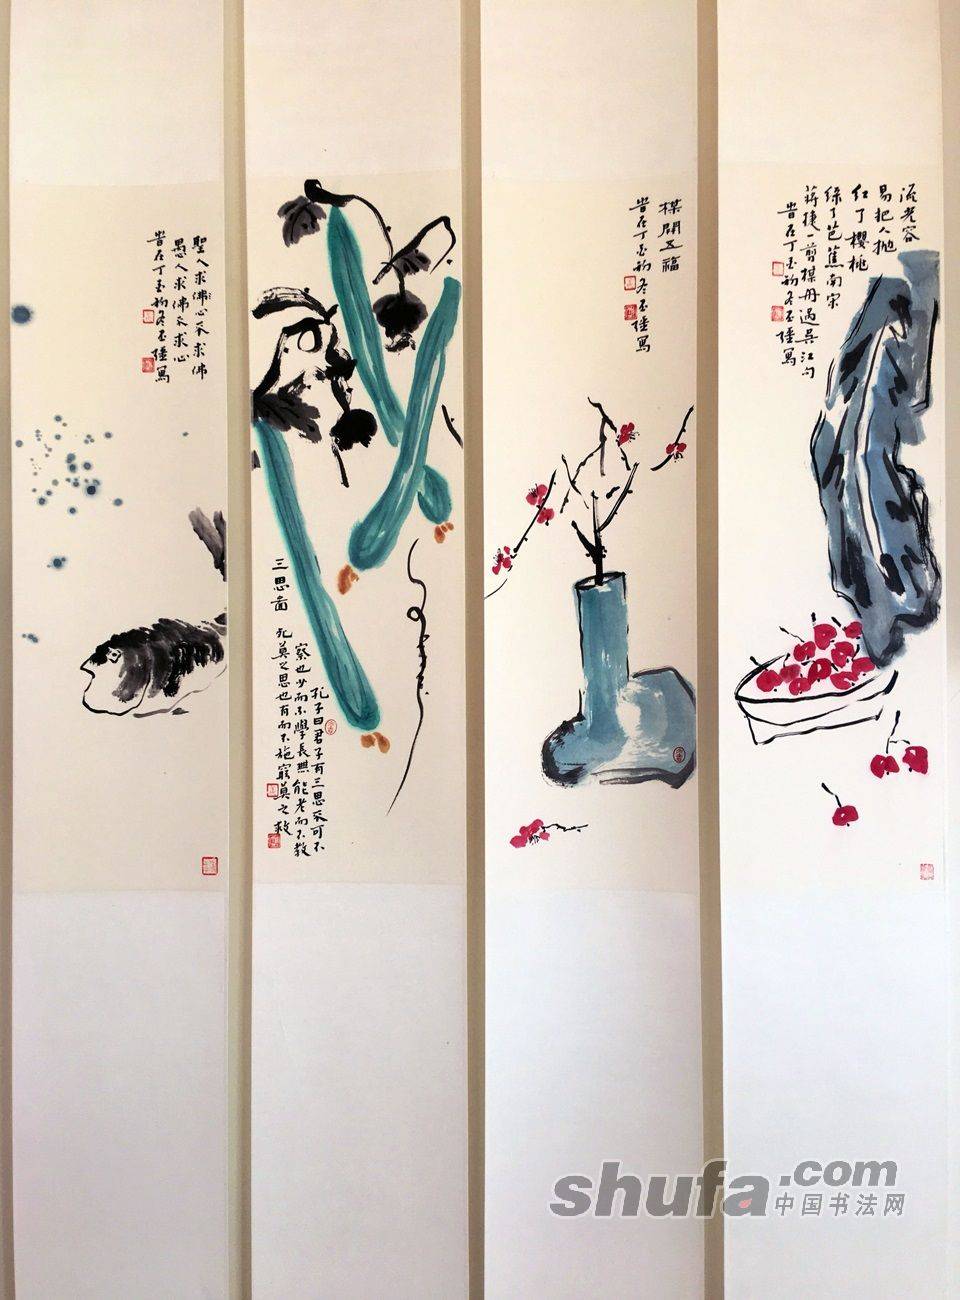 流光容
易把人抛
红了櫻桃
綠了芭蕉南宋
蒋捷一剪楳舟過吴江句
岁在丁酉初冬玉陸寫
楳開五福
岁在丁酉初冬玉陸寫
三思啚
孔子曰君子有三思不可不
察也少而不學長無能老而不教
死莫之思也有而不施窮莫之救
聖人求佛心不求佛
愚人求佛不求心
岁在丁酉初冬玉陸寫
shufa.com
中国书法网